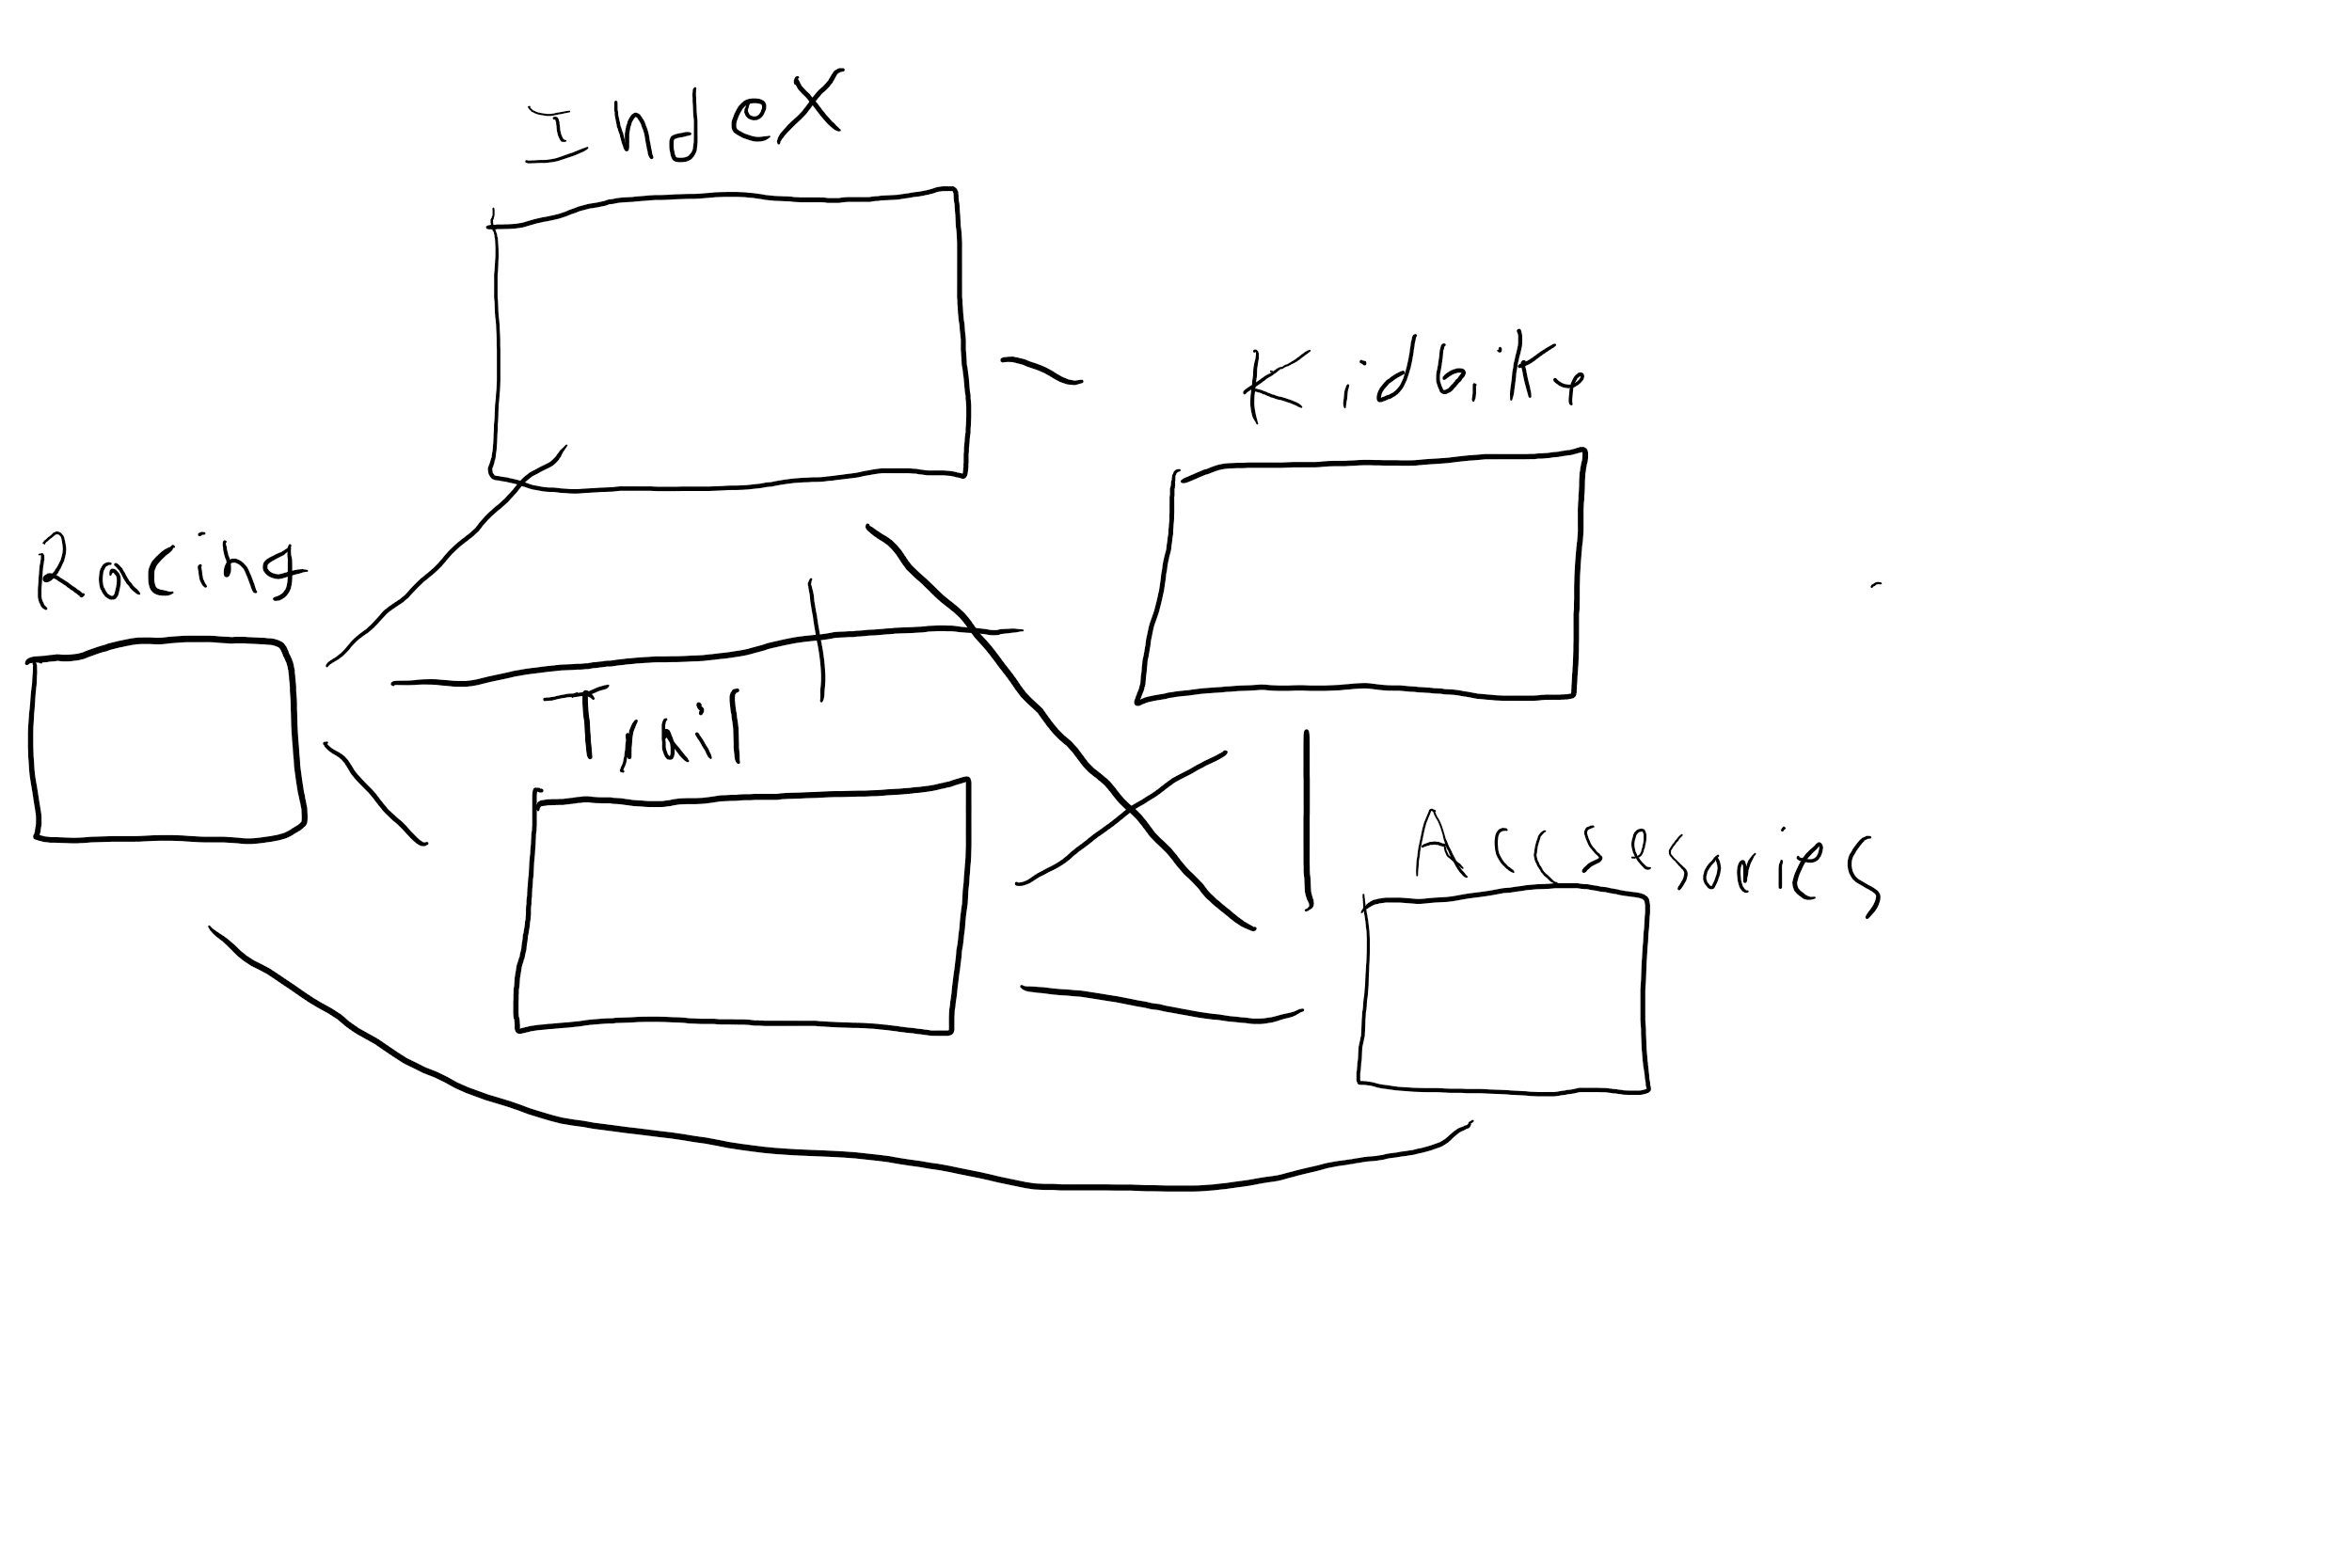 Index
Kidbike
Racing
Trail
Accsesories